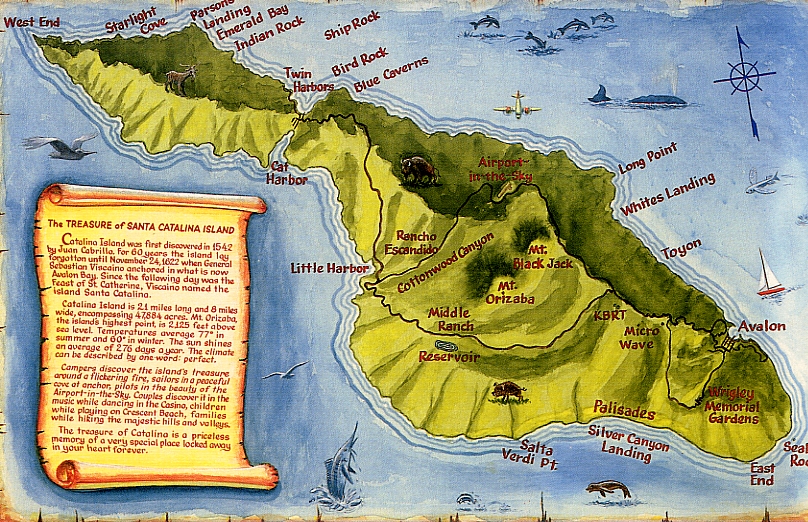 West End
Starlight
Cove
Parsons
Landing
Emerald Bay
Indian Rock
Ship Rock
Twin
Harbors
Bird Rock
Blue Caverns
Cat
Harbor
Airport-
in-the-Sky
Long Point
Whites Landing
Toyon
Rancho
Escandido
Cottonwood Canyon
Little Harbor
Mt.
Black Jack
Mt.
Orizaba
Middle
Ranch
Reservoir
KBRT
Micro
Wave
Avalon
Wrigley
Memorial
Gardens
Palisades
Silver Canyon
Landing
Salta
Verdi Pt.
East
End
Seal
The TREASURE of SANTA CATALINA ISLAND
Catalina Island was first discovered in 1542
by Juan Cabrillo. For 60 years the island lay
forgotten until November 24,1622 when General
Sebastian Viscaino anchored in what is now
Avalon Bay. Since the following day was the
feast of St. Catherine, Viscaino named the
island Santa Catalina.
Catalina Island is 21 miles long and 8 miles
wide, encompassing 47,884 acres. Mt. Orizaba,
the island's highest point, is 2,125 feet above
sea level. Temperatures average 77° in
summer and 60° in winter. The sun shines
an average of 276 days a year. The climate
can be described by one word: perfect.
Campers discover the island's treasure
around a flickering fire, sailors in a peaceful
cove at anchor, pilots in the beauty of the
Airport-in-the-Sky. Couples discover it in the
music while dancing in the Casino, children
while playing on Crescent Beach, families
while hiking the majestic hills and valleys.
The treasure of Catalina is a priceless
memory of a very special place locked away
in your heart forever.